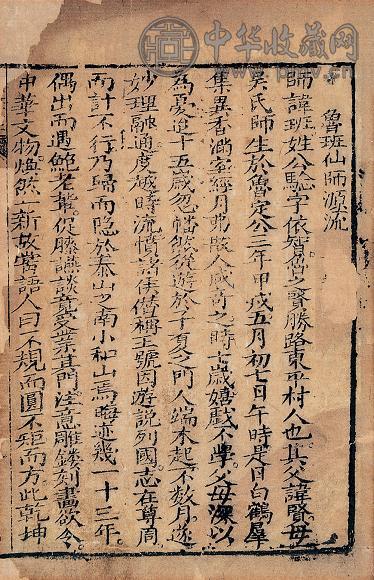 中华收藏网
魯班仙師源流
師諱班姓公輸字依智魯之賢勝路東平村人也其父諱賢母
吳氏師生於魯定公三年甲戌五月初七日午時是日白鶴羣
集異香滿室經月弗散人咸奇之時七歲嬉戲不學父母深以
為憂迨十五歲忽幡然從遊於子夏之門人端木起不数月遂
妙理融通度越時流憤諸侯僭稱王號因遊說列國志在尊周
而計不行乃歸而隐於泰山之南小和山焉晦迹幾一十三年
偶出而遇鮑老輩促膝讌談竟受業其門注意雕鏤刻畫欲令
中華文物煥然一新故嘗語人曰不規而圓不矩而方此乾坤